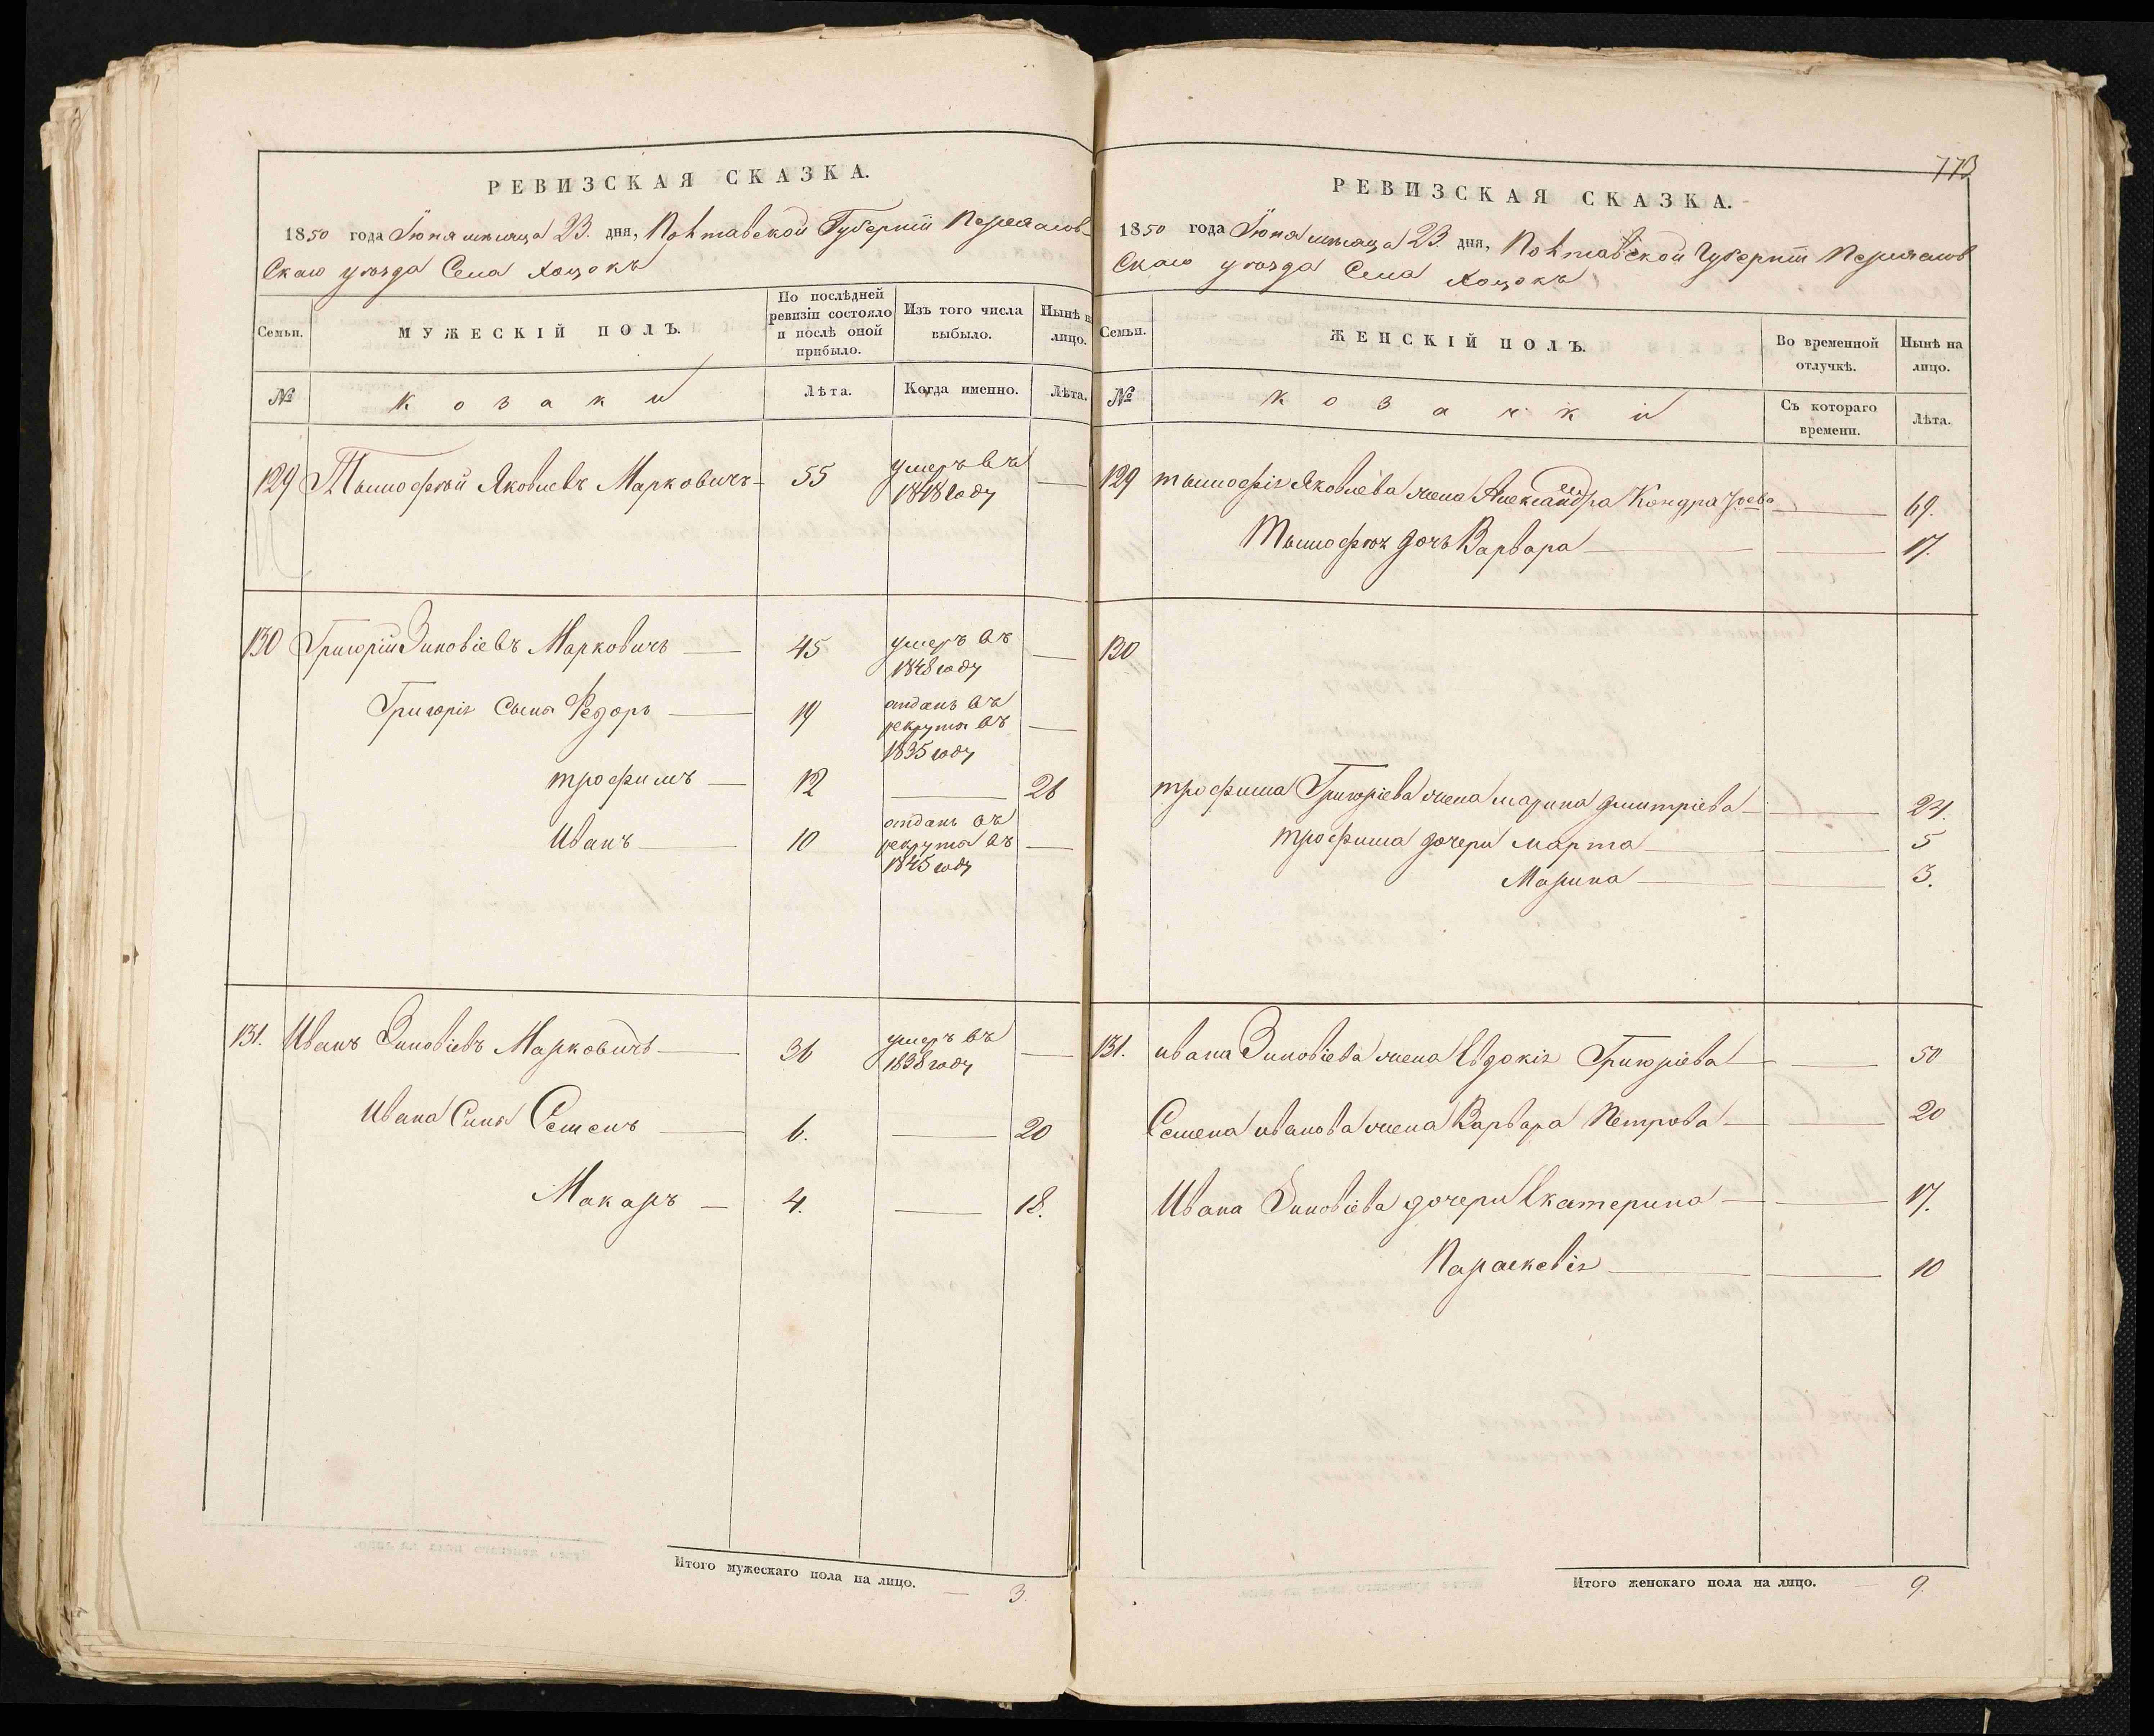 РЕВИЗСКАЯ СКАЗКА.
1850 года Іюня мѣсяца 23. дня, Полтавской Губерніи Переяслов-
Скаго уѣзда Села Хоцокъ
Семьи.
МУЖЕСКІЙ ПОЛЪ.
По послѣдней ревизіи состояло и послѣ оной прибыло.
Изъ того числа выбыло.
Нынѣ на лицо.
№
козаки
Лѣта.
Когда именно.
Лѣта.
129 Тымофѣй Яковлевъ Марковичъ — 55 умеръ въ 1848 году —
130 Григорій Зиновіевъ Марковичъ — 45 умеръ въ 1848 году —
Григорія Сынъ Федоръ — 19 отданъ въ рекрута въ 1835 году —
трофимъ — 12 — 26
Иванъ — 10 отданъ въ рекрута въ 1845 году —
131. Иванъ Зиновіевъ Марковичъ — 36 умеръ въ 1838 году —
Ивана Сынъ Семенъ — 6. — 20
Макаръ — 4. — 18.
Итого мужескаго пола на лицо. — 3.
773
РЕВИЗСКАЯ СКАЗКА.
1850 года Іюня мѣсяца 23. дня, Полтавской Губерніи Переяслов
Скаго уѣзда Села Хоцокъ
Семьи.
ЖЕНСКІЙ ПОЛЪ.
Во временной отлучкѣ.
Нынѣ на лицо.
№
козачки
Съ котораго времени.
Лѣта.
129 тымофія Яковлева жена Александра Кондратьева — 69.
Тымофѣя дочь Варвара — — 17.
130
трофима Григоріева жена марина дмитріева — — 24.
трофима дочери марта — — 5
Марина — — 3.
131. ивана Зиновіева жена Евдокія Григоріева — — 50
Семена иванова жена Варвара Петрова — — 20
Ивана Зиновіева дочери Екатерина — — 17.
Параскевія — — 10
Итого женскаго пола на лицо. — 9.